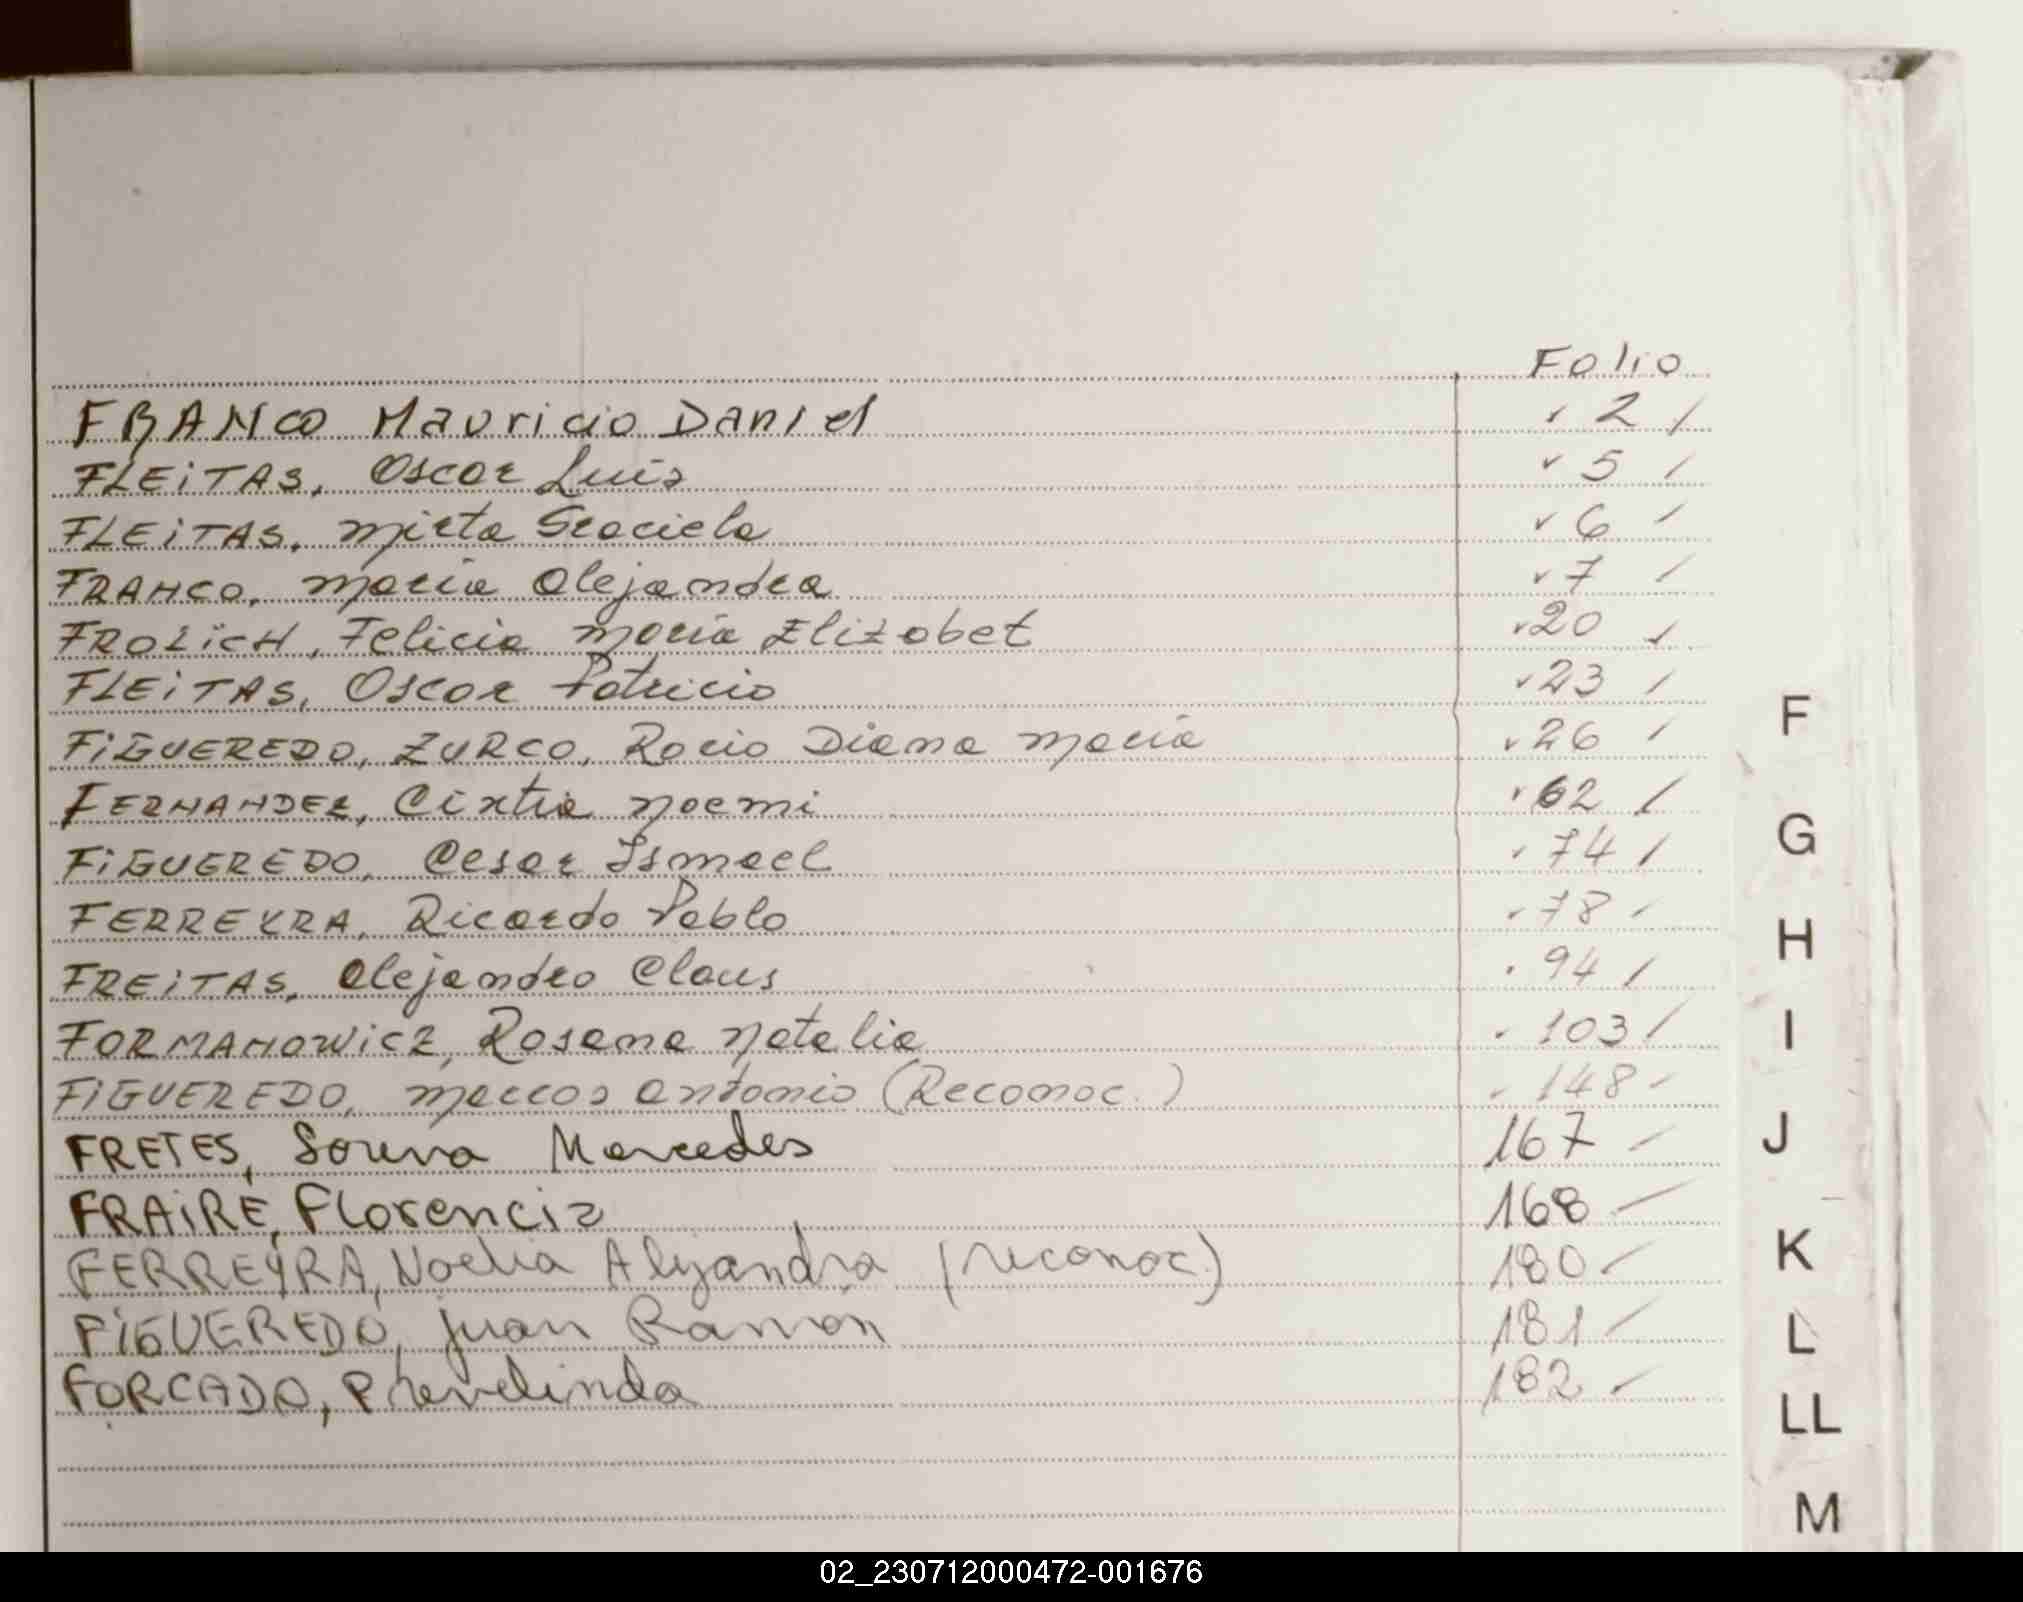 Folio
FRANCO Mauricio Daniel 2
FLEiTAS, Oscar Luis 5
FLEiTAS, Mirta Graciela 6
FRANCO, Maria Alejandra 7
FROLiCH, Felicia Maria Elizabet 20
FLEiTAS, Oscar Patricio 23
FiGUEREDO, ZURCO, Rocio Diana Maria 26
FERNANDEZ, Cintia Noemi 62
FiGUEREDO, Cesar Ismael 74
FERREYRA, Ricardo Pablo 78
FREiTAS, Alejandro Claus 94
FORMANOWiCZ, Rosana Natalia 103
FiGUEREDO, Marcos Antonio (Reconoc.) 148
FRETES, Mercedes 167
FRAiRE, Florencia 168
FERREYRA, Noelia Alejandra (reconoc.) 180
FiGUEREDO, Juan Ramon 181
FORCADO, 182
F
G
H
I
J
K
L
LL
M
02_230712000472-001676